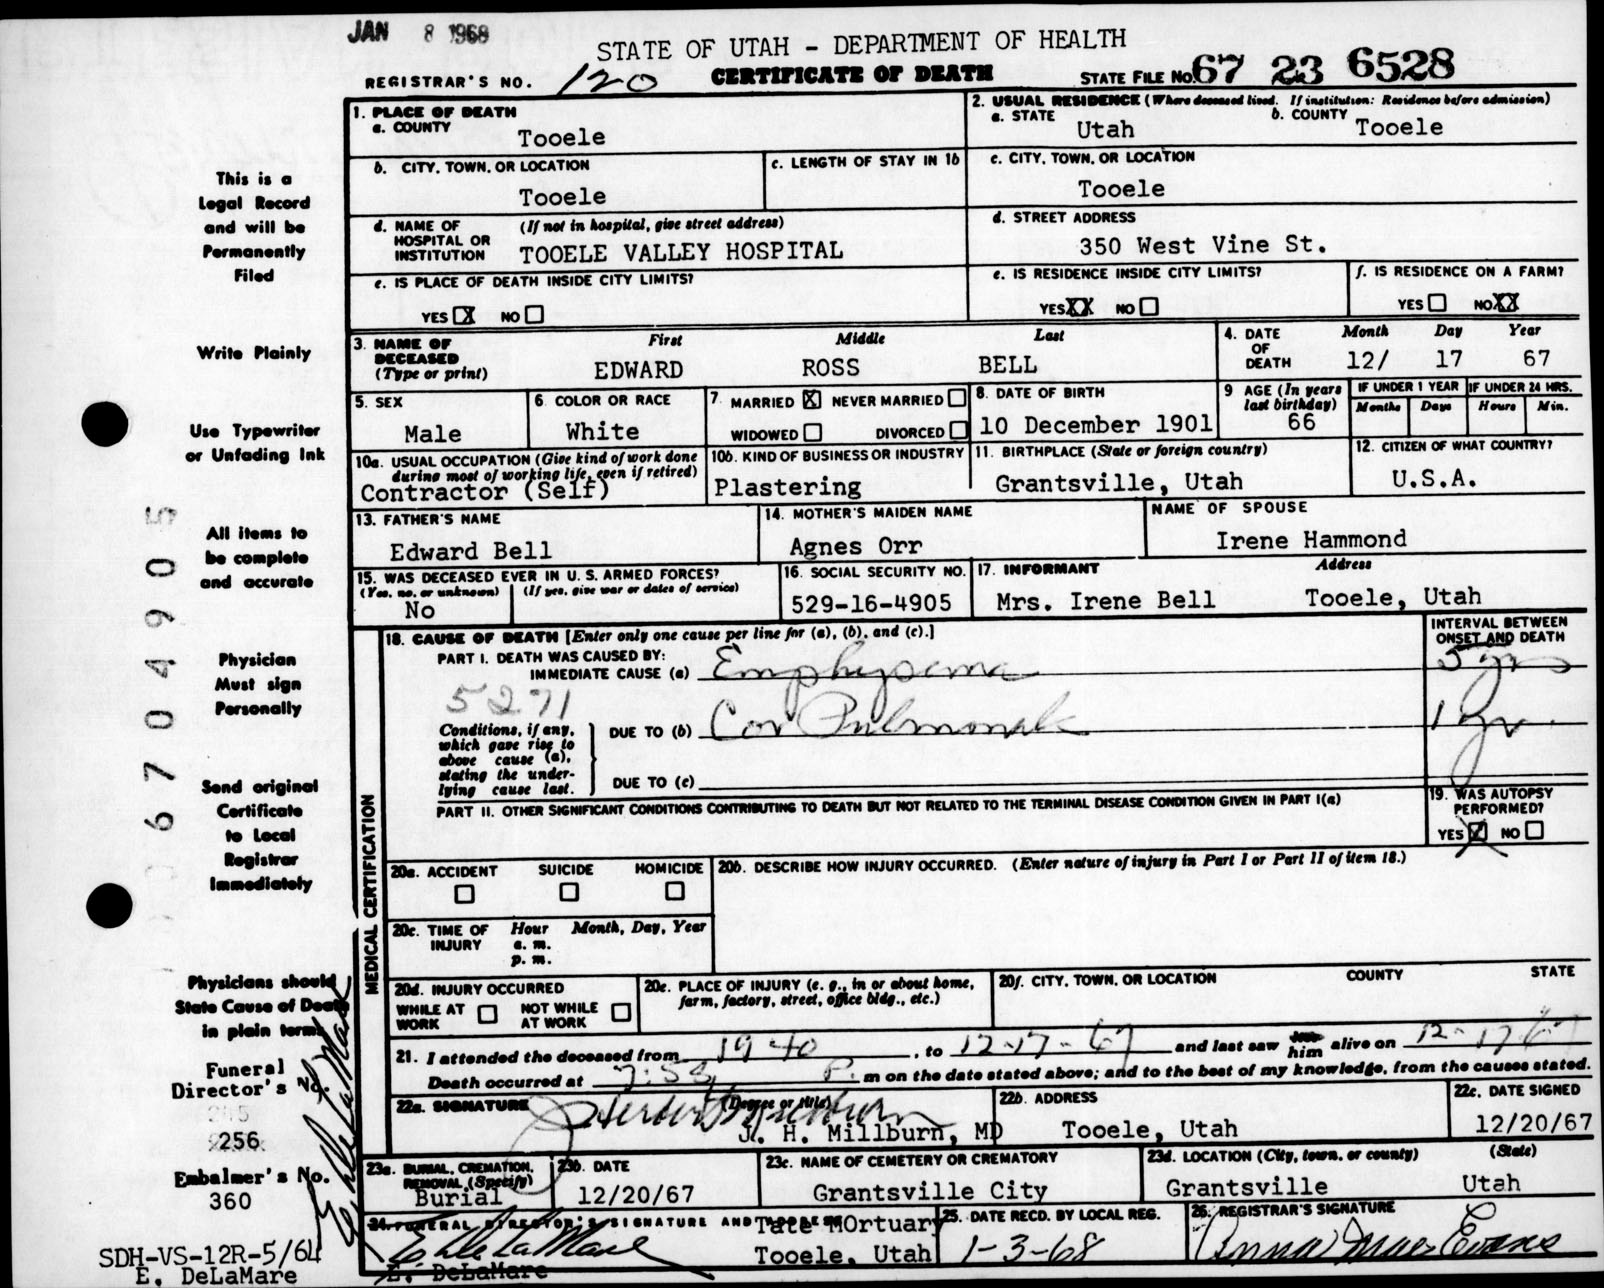 JAN 8 1968
STATE OF UTAH - DEPARTMENT OF HEALTH
REGISTRAR'S NO. 120 CERTIFICATE OF DEATH STATE FILE NO. 67 23 6528
1. PLACE OF DEATH
a. COUNTY
Tooele
2. USUAL RESIDENCE (Where deceased lived. If institution: Residence before admission)
a. STATE
Utah
b. COUNTY
Tooele
b. CITY, TOWN, OR LOCATION
Tooele
c. LENGTH OF STAY IN 1b
c. CITY, TOWN, OR LOCATION
Tooele
d. NAME OF HOSPITAL OR INSTITUTION
(If not in hospital, give street address)
TOOELE VALLEY HOSPITAL
d. STREET ADDRESS
350 West Vine St.
e. IS PLACE OF DEATH INSIDE CITY LIMITS?
YES X NO
e. IS RESIDENCE INSIDE CITY LIMITS?
YES XX NO
f. IS RESIDENCE ON A FARM?
YES NO XX
3. NAME OF DECEASED
(Type or print)
First Middle Last
EDWARD ROSS BELL
4. DATE OF DEATH
Month Day Year
12/ 17 67
5. SEX
Male
6. COLOR OR RACE
White
7. MARRIED X NEVER MARRIED
WIDOWED DIVORCED
8. DATE OF BIRTH
10 December 1901
9 AGE (In years last birthday)
66
IF UNDER 1 YEAR
Months Days
IF UNDER 24 HRS.
Hours Min.
10a. USUAL OCCUPATION (Give kind of work done during most of working life, even if retired)
Contractor (Self)
10b. KIND OF BUSINESS OR INDUSTRY
Plastering
11. BIRTHPLACE (State or foreign country)
Grantsville, Utah
12. CITIZEN OF WHAT COUNTRY?
U.S.A.
13. FATHER'S NAME
Edward Bell
14. MOTHER'S MAIDEN NAME
Agnes Orr
NAME OF SPOUSE
Irene Hammond
15. WAS DECEASED EVER IN U. S. ARMED FORCES?
(Yes, no, or unknown) (If yes, give war or dates of service)
No
16. SOCIAL SECURITY NO.
529-16-4905
17. INFORMANT Address
Mrs. Irene Bell Tooele, Utah
MEDICAL CERTIFICATION
18. CAUSE OF DEATH [Enter only one cause per line for (a), (b), and (c).]
INTERVAL BETWEEN ONSET AND DEATH
PART I. DEATH WAS CAUSED BY:
IMMEDIATE CAUSE (a) Emphysema 5 yrs
5271
Conditions, if any, which gave rise to above cause (a), stating the underlying cause last.
DUE TO (b) Cor Pulmonale 1 yr.
DUE TO (c)
PART II. OTHER SIGNIFICANT CONDITIONS CONTRIBUTING TO DEATH BUT NOT RELATED TO THE TERMINAL DISEASE CONDITION GIVEN IN PART I(a)
19. WAS AUTOPSY PERFORMED?
YES X NO
20a. ACCIDENT SUICIDE HOMICIDE
20b. DESCRIBE HOW INJURY OCCURRED. (Enter nature of injury in Part I or Part II of item 18.)
20c. TIME OF INJURY
Hour Month, Day, Year
a. m.
p. m.
20d. INJURY OCCURRED
WHILE AT WORK NOT WHILE AT WORK
20e. PLACE OF INJURY (e. g., in or about home, farm, factory, street, office bldg., etc.)
20f. CITY, TOWN, OR LOCATION COUNTY STATE
21. I attended the deceased from 1940, to 12-17-67 and last saw him alive on 12-17-67
Death occurred at 7:55 P. m on the date stated above; and to the best of my knowledge, from the causes stated.
22a. SIGNATURE (Degree or title)
J. H. Millburn, MD
22b. ADDRESS
Tooele, Utah
22c. DATE SIGNED
12/20/67
23a. BURIAL, CREMATION, REMOVAL (Specify)
Burial
23b. DATE
12/20/67
23c. NAME OF CEMETERY OR CREMATORY
Grantsville City
23d. LOCATION (City, town, or county) (State)
Grantsville Utah
24. FUNERAL DIRECTOR'S SIGNATURE AND ADDRESS
Tate MOrtuary
Tooele, Utah
E. DeLaMare
25. DATE RECD. BY LOCAL REG.
1-3-68
26. REGISTRAR'S SIGNATURE
Anna Mae Evans
This is a
Legal Record
and will be
Permanently
Filed
Write Plainly
Use Typewriter
or Unfading Ink
All items to
be complete
and accurate
Physician
Must sign
Personally
Send original
Certificate
to Local
Registrar
Immediately
Physicians should
State Cause of Death
in plain terms
Funeral
Director's No.
256
Embalmer's No.
360
SDH-VS-12R-5/64
E. DeLaMare
6704905